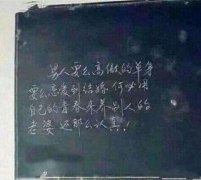 男人要么高傲的单身
要么高度到结婚 何必用
自己的青春来养别人的
老婆 还那么认真！